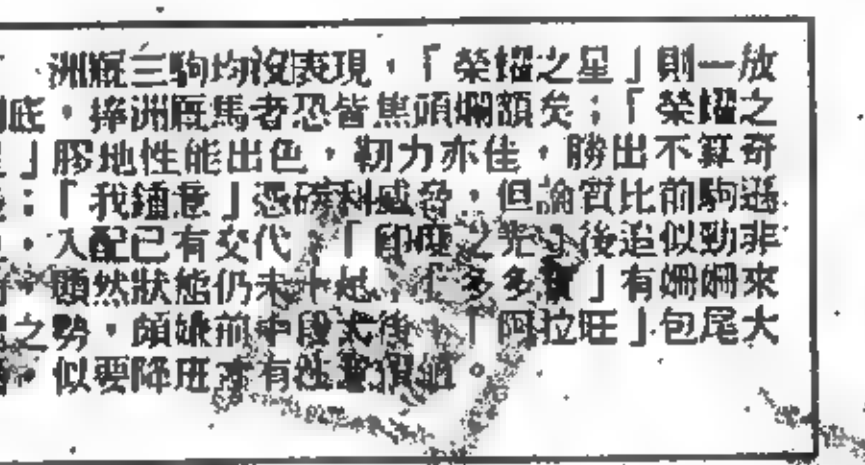 洲廐三駒均沒表現，「榮耀之星」則一放
到底，捧洲廐馬者恐皆焦頭爛額矣；「榮耀之
」膠地性能出色，韌力亦佳，勝出不算奇
；「我鍾意」憑 威脅，但論質比前駒遜
，入配已有交代；「印度之 」後追似勁非
，顯然狀態仍未 「多多 」有姍姍來
之勢，頗嫌前中段 後 「阿拉旺」包尾大
，似要降班才有 。